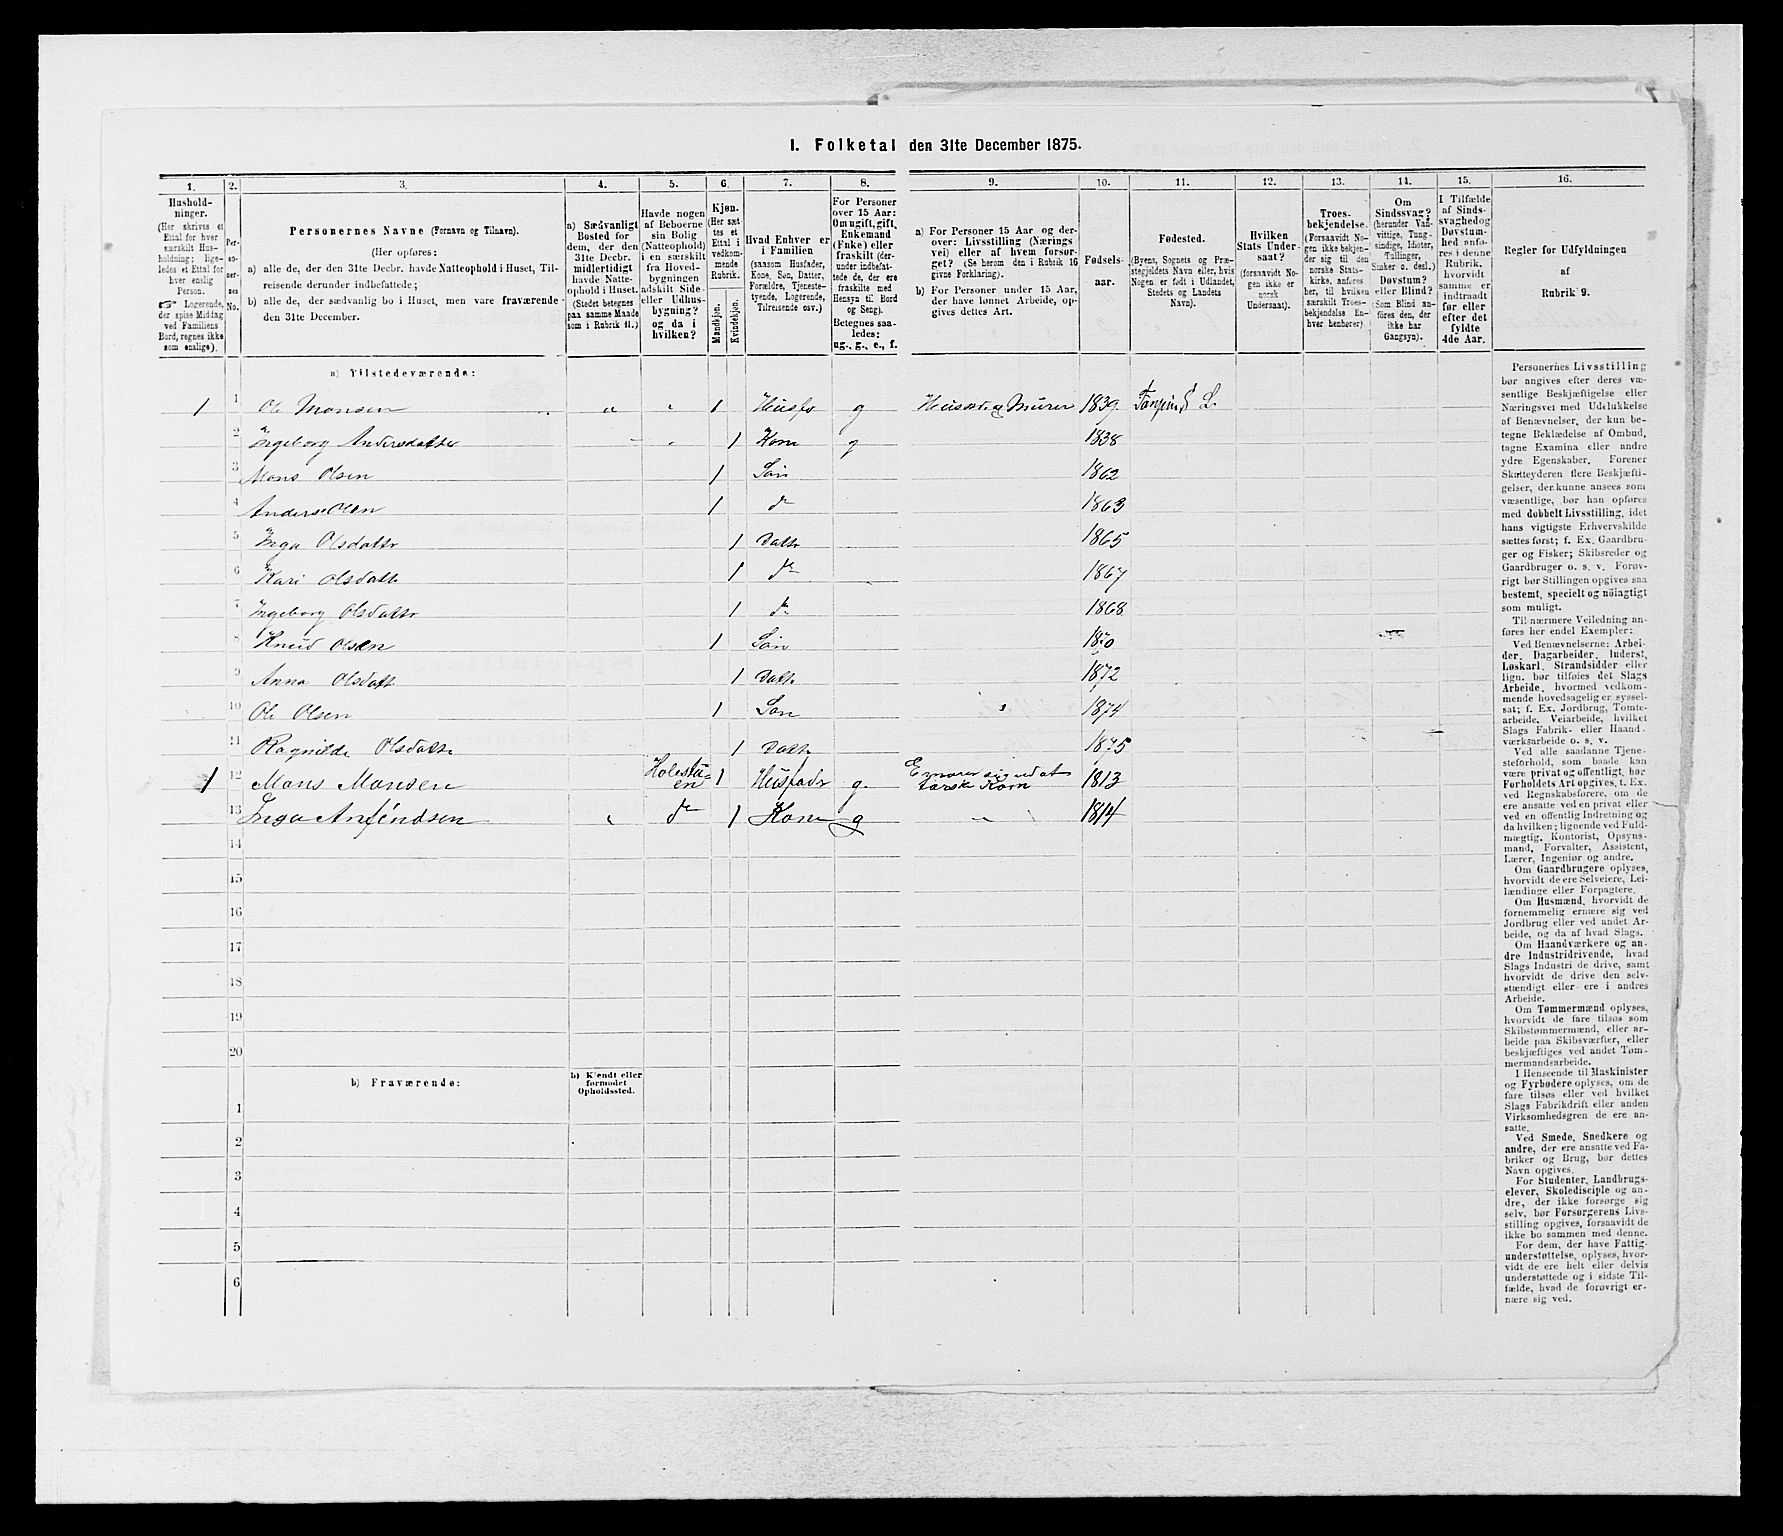 I. Folketal den 31te December 1875.
1. 2. 3. 4. 5. 6. 7. 8. 9. 10. 11. 12. 13. 14. 15. 16.
Husholdninger.
(Her skrives et
Ettal for hver
særskilt Husholdning; ligeledes et Ettal for
hver enslig
Person.
☞ Logerende,
der spise Middag
ved Familiens
Bord, regnes ikke
som enslige).
Personernes No.
Personernes Navne (Fornavn og Tilnavn).
(Her opføres:
a) alle de, der den 31te Decbr. havde Natteophold i Huset, Tilreisende derunder indbefattede;
b) alle de, der sædvanlig bo i Huset, men vare fraværende
den 31te December.
a) Sædvanligt
Bosted for
dem, der den
31te Decbr.
midlertidigt
havde Natteophold i Huset.
(Stedet betegnes
paa samme Maade
som i Rubrik 11.)
Havde nogen
af Beboerne
sin Bolig
(Natteophold)
i en særskilt
fra Hovedbygningen
adskilt Side-
eller Udhusbygning?
og da i
hvilken?
Kjøn.
(Her sættes et
Ettal i
vedkommende
Rubrik.
Mandkjøn.
Kvindekjøn.
Hvad Enhver er
i Familien
(saasom Husfader,
Kone, Søn, Datter,
Forældre, Tjenestetyende, Logerende,
Tilreisende osv.)
For Personer
over 15 Aar:
Om ugift, gift,
Enkemand
(Enke) eller
fraskilt (derunder indbefattede de, der ere
fraskilte med
Hensyn til Bord
og Seng).
Betegnes saaledes:
ug., g., e., f.
a) For Personer 15 Aar og derover: Livsstilling (Næringsvei) eller af hvem forsørget? (Se herom den i Rubrik 16
givne Forklaring).
b) For Personer under 15 Aar,
der have lønnet Arbeide, opgives dettes Art.
Fødselsaar.
Fødested.
(Byens, Sognets og Præstegjeldets Navn eller, hvis
Nogen er født i Udlandet,
Stedets og Landets
Navn).
Hvilken
Stats Undersaat?
(forsaavidt Nogen ikke er
norsk
Undersaat).
Troesbekjendelse.
(Forsaavidt Nogen ikke bekjender sig til den
norske Statskirke, anføres
her, til hvilken
særskilt Troesbekjendelse Enhver henhører).
Om
Sindssvag?
(herunder Vanvittige, Tungsindige, Idioter,
Tullinger,
Sinker o. desl.)
Døvstum?
eller Blind?
(Som Blind anføres den, der
ikke har
Gangsyn).
I Tilfælde
af Sindssvaghed og
Døvstumhed anføres i denne
Rubrik,
hvorvidt
samme er
indtraadt
før eller
efter det
fyldte
4de Aar.
Regler for Udfyldningen
af
Rubrik 9.
a) Tilstedeværende:
1 1 Ole Monsen 1 Husf g Husmd og Murer 1839
2 Ingeborg Andersdatter 1 Kone g 1838
3 Mons Olsen 1 Søn 1862
4 Anders Olsen 1 do 1863
5 Inga Olsdattr 1 Dattr 1865
6 Kari Olsdatt 1 do 1867
7 Ingeborg Olsdattr 1 do 1868
8 Knud Olsen 1 Søn 1870
9 Anna Olsdatt 1 Datt 1872
10 Ole Olsen 1 Søn 1874
11 Ragnilde Olsdatt 1 Datt 1875
1 12 Mons Monsen 1 Husfadr g. 1813
13 Inga Amundsen do 1 Kone g 1814
14
15
16
17
18
19
20
b) Fraværende:
b) Kjendt eller
formodet
Opholdssted.
1
2
3
4
5
6
Personernes Livsstilling
bør angives efter deres væsentlige Beskjæftigelse eller
Næringsvei med Udelukkelse
af Benævnelser, der kun betegne Beklædelse af Ombud,
tagne Examina eller andre
ydre Egenskaber. Forener
Skatteyderen flere Beskjæftigelser, der kunne ansees som
væsentlige, bør han opføres
med dobbelt Livsstilling, idet
hans vigtigste Erhvervskilde
sættes først; f. Ex. Gaardbruger og Fisker; Skibsreder og
Gaardbruger o. s. v. Forøvrigt bør Stillingen opgives saa
bestemt, specielt og nöiagtigt
som muligt.
Til nærmere Veiledning anføres her endel Exempler:
Ved Benævnelserne: Arbeider, Dagarbeider, Inderst,
Løskarl, Strandsidder eller
lign. bør tilføies det Slags
Arbeide, hvormed vedkommende hovedsagelig er sysselsat; f. Ex. Jordbrug, Tomtearbeide, Veiarbeide, hvilket
Slags Fabrik- eller Haandværksarbeide o. s. v.
Ved alle saadanne Tjenesteforhold, som baade kan
være privat og offentligt, bør
Forholdets Art opgives, f. Ex.
ved Regnskabsførere, om de
ere ansatte ved en privat eller
ved en offentlig Indretning og
da hvilken; lignende ved Fuldmægtig, Kontorist, Opsynsmand, Forvalter, Assistent,
Lærer, Ingeniør og andre.
Om Gaardbrugere oplyses,
hvorvidt de ere Selveiere, Leilændinge eller Forpagtere.
Om Husmænd, hvorvidt de
fornemmelig ernære sig ved
Jordbrug eller ved andet Arbeide, og da af hvad Slags.
Om Haandværkere og andre Industridrivende, hvad
Slags Industri de drive, samt
hvorvidt de drive den selvstændigt eller ere i andres
Arbeide.
Om Tømmermænd oplyses,
hvorvidt de fare tilsøs som
Skibstømmermænd, eller arbeide paa Skibsværfter, eller
beskjæftiges ved andet Tømmermandsarbeide.
I Henseende til Maskinister
og Fyrbødere oplyses, om de
fare tilsøs eller ved hvilket
Slags Fabrikdrift eller anden
Virksomhedsgren de ere ansatte.
Ved Smede, Snedkere og
andre, der ere ansatte ved Fabriker og Brug, bør dettes
Navn opgives.
For Studenter, Landbrugselever, Skoledisciple og andre, der ikke forsørge sig
selv, bør Forsørgerens Livsstilling opgives, forsaavidt de
ikke bo sammen med denne.
For dem, der have Fattigunderstøttelse, oplyses, hvorvidt de ere helt eller delvis
understøttede og i sidste Tilfælde, hvad de forøvrigt ernære sig ved.